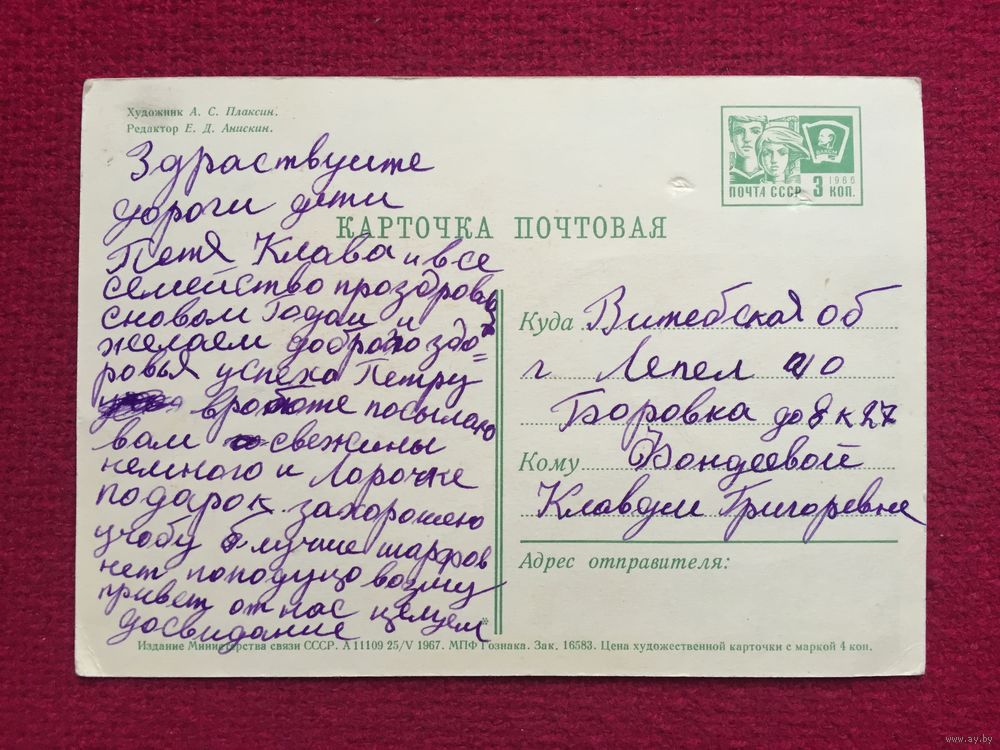 Художник А. С. Плаксин.
Редактор Е. Д. Анискин.
ПОЧТА СССР 3 КОП.
1966
ВЛКСМ
КАРТОЧКА ПОЧТОВАЯ
Здраствуите
дороги дети
Петя Клава и все
семейство проздровья
сновом Годом и
желаем доброго здо=
ровья успеха Петру
вработе посылаю
вам свежины
немного и Лорочке
подарок захорошею
учобу лучше шарфов
нет пападуцо возму
привет от нас целуем
досвидание
Куда Витебская об
г Лепел
Боровка до 8 к 27
Кому Вондеевой
Клавдии Григоревне
Адрес отправителя:
Издание Министерства связи СССР. А 11109 25/V 1967. МПФ Гознака. Зак. 16583. Цена художественной карточки с маркой 4 коп.
www.ay.by